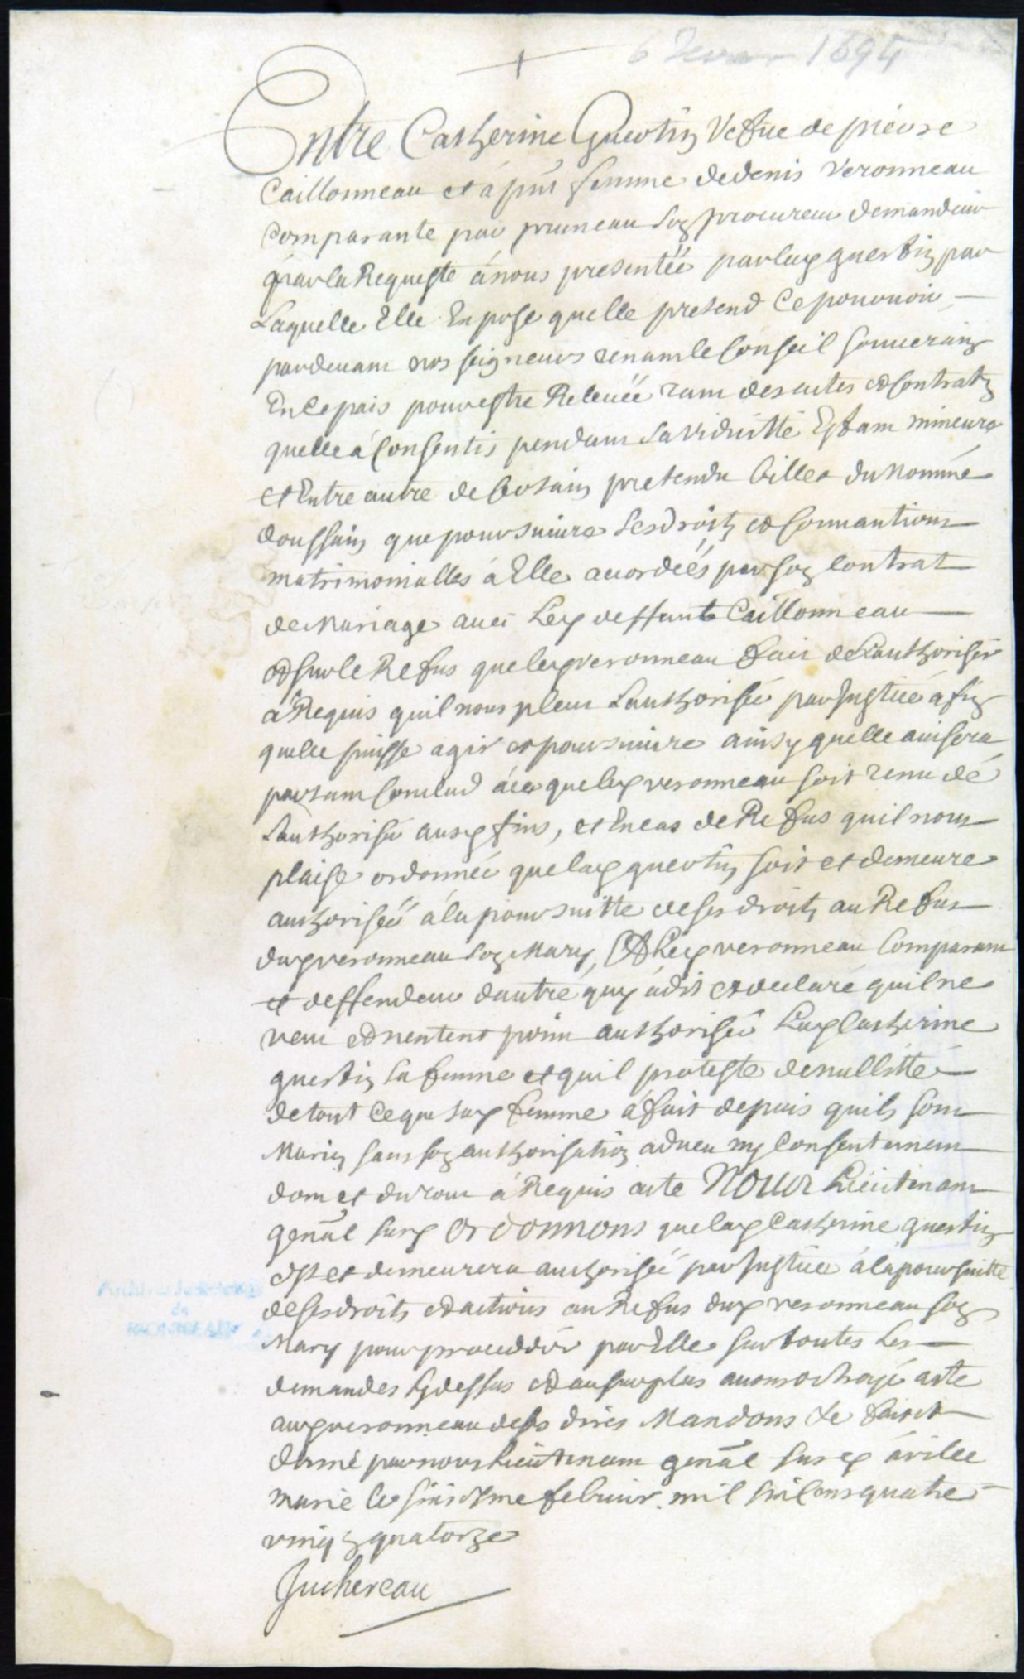 6 fevrier 1694
Entre Catherine Guertin Vefue de pierre
Caillonneau et a pnt femme de denis Veronneau
Comparante par pruneau son procureur demandeur
par la Requeste a nous presentée par lad guertin par
Laquelle Elle Expose quelle pretend Ce pouruoir
pardeuant nos seigneurs tenant le Conseil souuerain
En Ce pais pour estre Releuée tant des actes et Contrats
quelle a Consentis pendant sa viduitté Estant mineure
et Entre autre de Certain pretendu billet du Nommé
doussin que poursuiure ses droits et Conuantions
matrimonialles a Elle acordéés par son Contrat
de Mariage auec Led deffunt Caillonneau
et sur le Refus que led veronneau fait de Lauthoriser
a Requis quil nous pleut Lauthorisée par Justice afin
quelle puisse agir et poursuiure ainsy quelle auisera
partant Conclud a ce que led veronneau soit tenu de
Lauthorisé ausd fins, et En cas de Refus quil nous
plaise ordonnée que lad guertin soit et demeure
authorisée a la poursuitte de ses droits au Refus
dud veronneau son Mary, Et Led veronneau Comparant
et deffendeur dautre quy a dit et declaré quil ne
veut et nentent point authorisée Lad Catherine
guertin sa femme et quil proteste de nullitté
de tout Ce que sad femme a fait depuis quils sont
Mariez sans son authorisation adueu ny Consentement
dont et du tout a Requis acte NOUS Lieutenant
genal susd Ordonnons que lad Catherine guertin
est et demeurera authorisée par Justice a la poursuitte
de ses droits et actions au Refus dud veronneau son
Mary pour proceddér par Elle sur toutes Les
demandes Cy dessus et au surplus auons octroyé acte
aud veronneau de ses dires Mandons &c fait et
donné par nous Lieutenant genal susd a ville
marie le sixiesme febuier mil six cens quatre
vingt quatorze
Juchereau